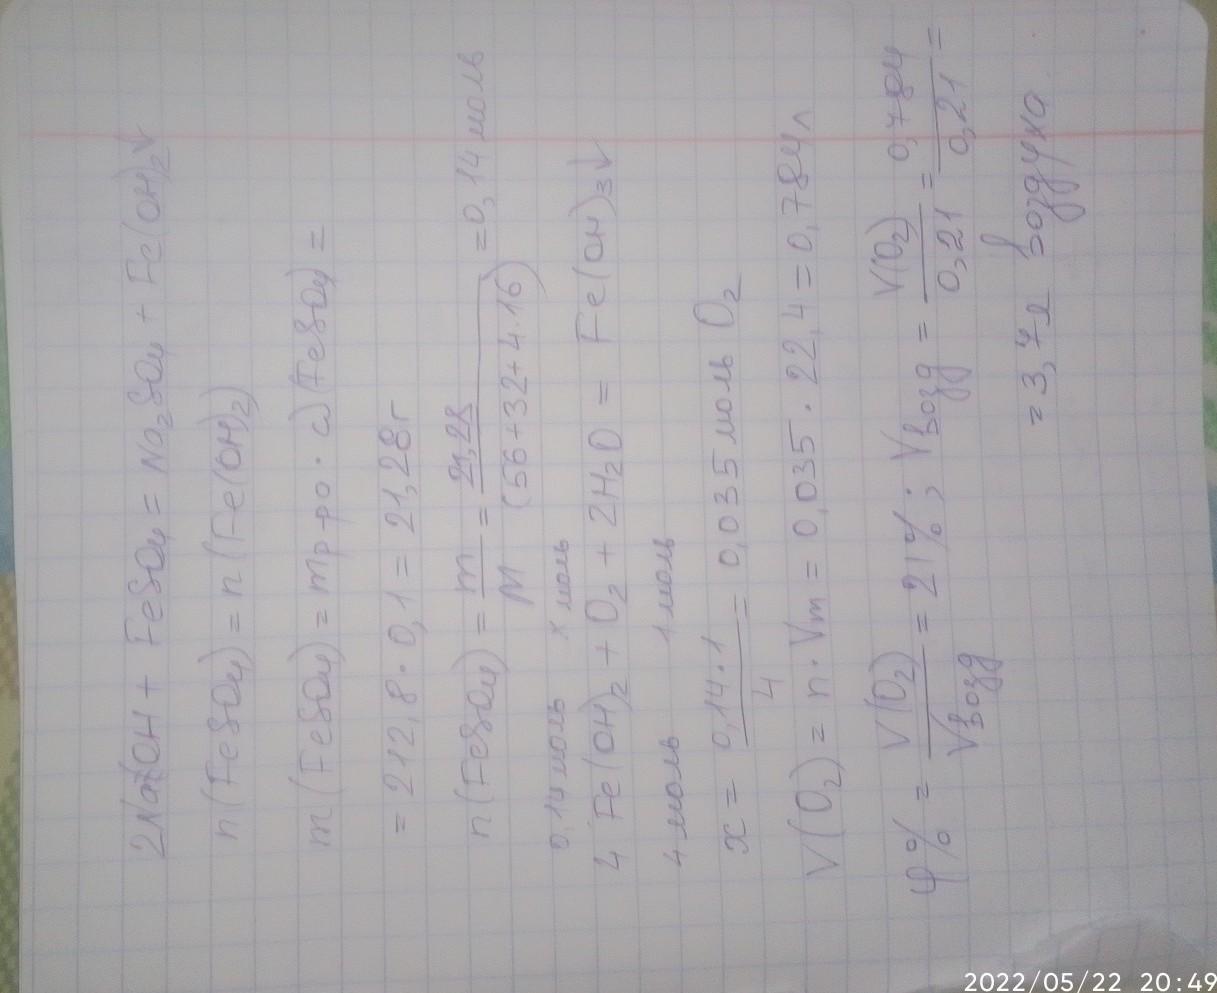 2NaOH + FeSO₄ = Na₂SO₄ + Fe(OH)₂↓
n(FeSO₄) = n(Fe(OH)₂)
m(FeSO₄) = mр-ра · ω(FeSO₄) =
= 212,8 · 0,1 = 21,28г
n(FeSO₄) = m/M = 21,28/(56+32+4·16) = 0,14 моль
0,14 моль x моль
4 Fe(OH)₂ + O₂ + 2H₂O = Fe(OH)₃↓
4 моль 1 моль
x = 0,14·1/4 = 0,035 моль O₂
V(O₂) = n · Vm = 0,035 · 22,4 = 0,784л
φ% = V(O₂)/Vвозд = 21%; Vвозд = V(O₂)/0,21 = 0,784/0,21 =
= 3,7л воздуха
2022/05/22 20:49